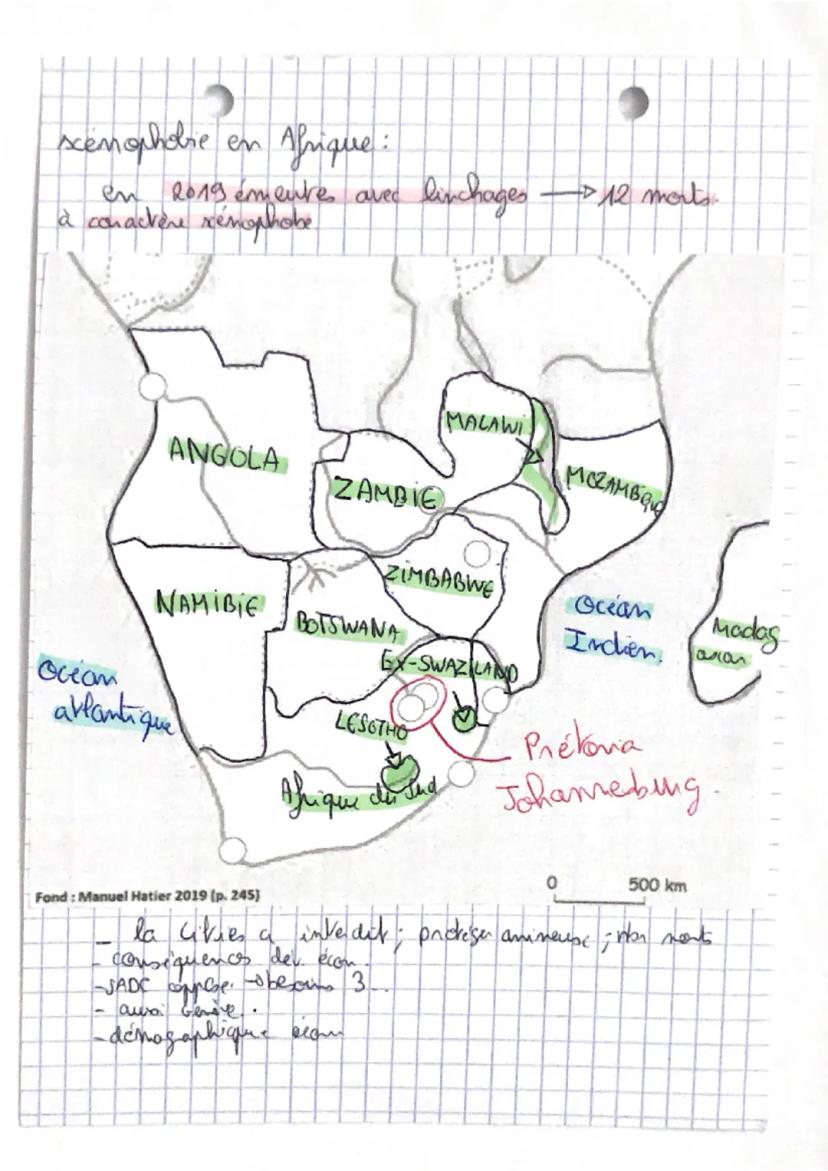 xénophobie en Afrique :
en 2019 émeutes avec linchages → 12 morts.
à caractère xénophobe
MALAWI
ANGOLA
MOZAMBIQUE
ZAMBIE
ZIMBABWE
NAMIBIE
Océan
Indien
BOTSWANA
Madag
ascar
EX-SWAZILAND
Océan
atlantique
LESOTHO
Prétoria
Johannesburg.
Afrique du Sud
0 500 km
Fond : Manuel Hatier 2019 (p. 245)
- la Cites a interdit ; protéger
- conséquences dev écon.
- SADC oppose → besoins 3
- aussi
- démographique